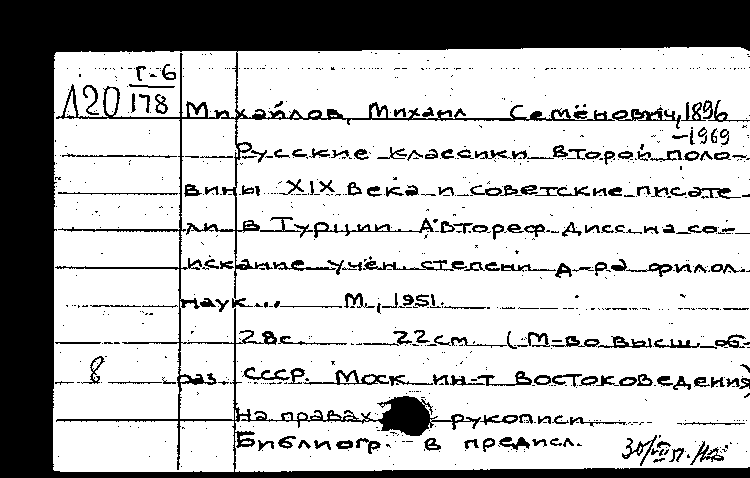 Г-6
Л20 178 Михайлов, Михаил Семёнович, 1896
-1969
Русские классики второй поло-
вины XIX века и советские писате
ли в Турции. Автореф. дисс. на со-
искание учён. степени д-ра филол.
наук... М., 1951.
28с. 22см. (М-во высш. об-
8 раз. СССР. Моск ин-т востоковедения)
На правах рукописи.
Библиогр. в предисл.